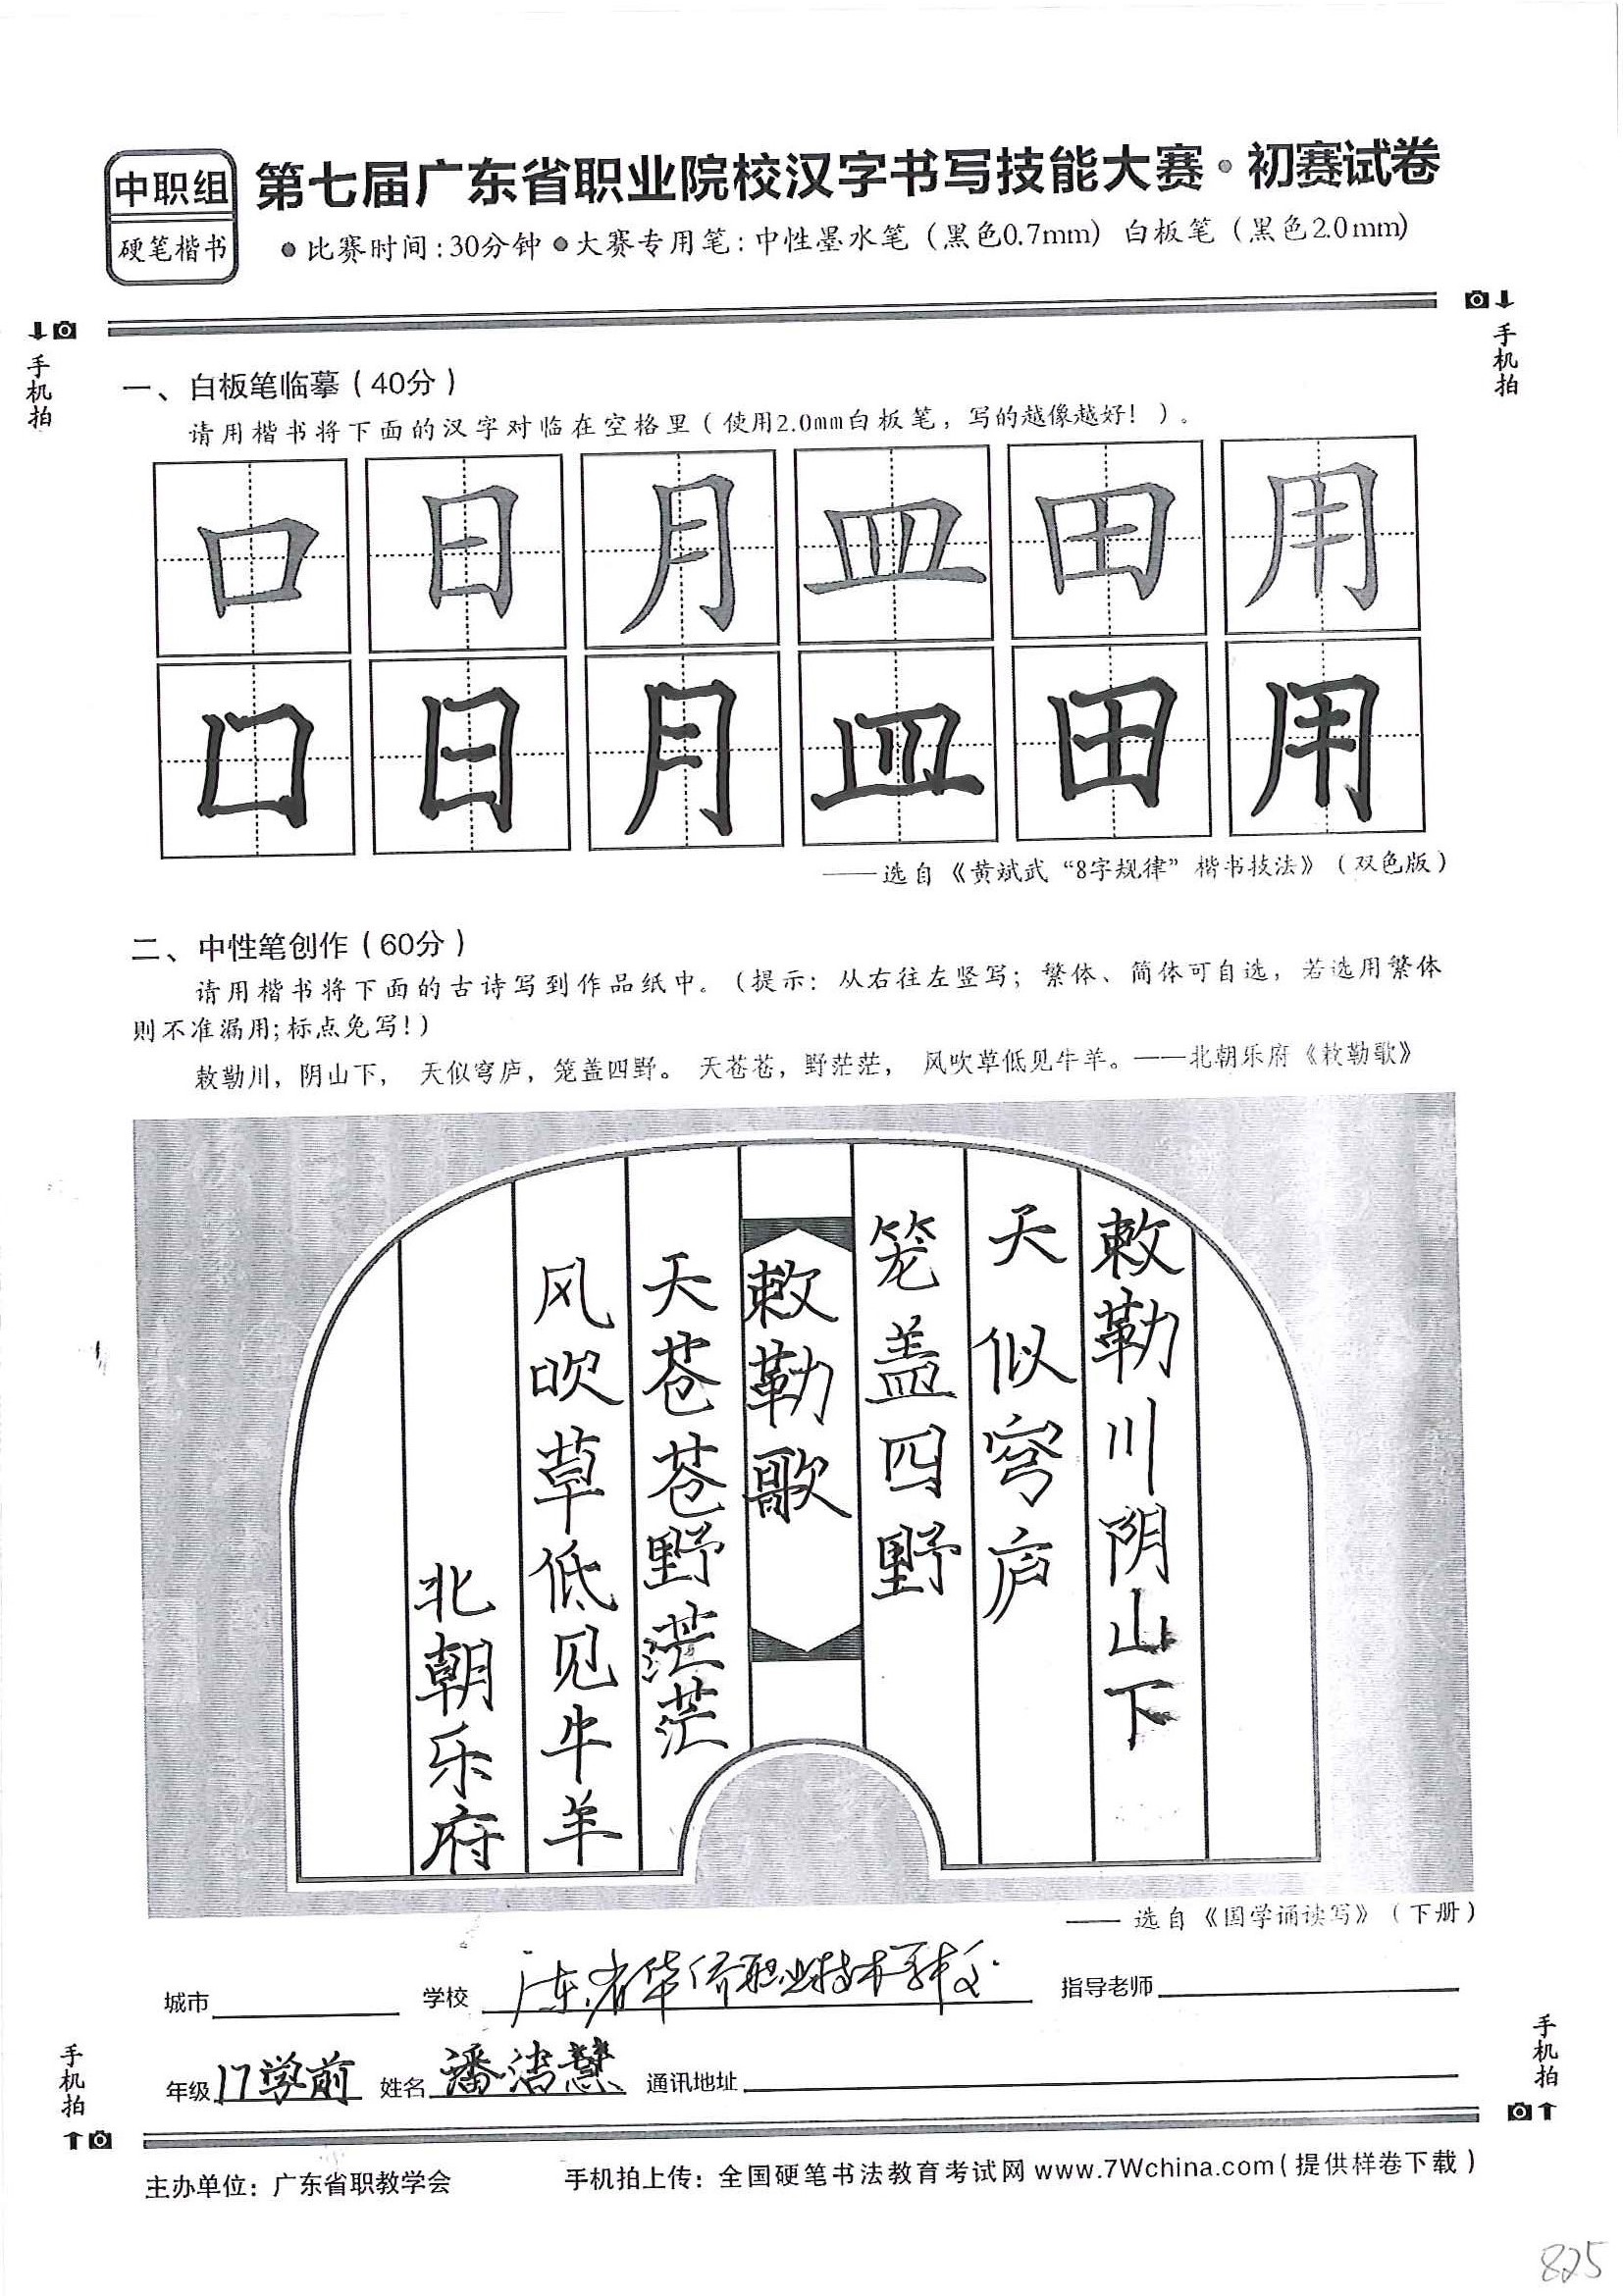 中职组
硬笔楷书
第七届广东省职业院校汉字书写技能大赛·初赛试卷
●比赛时间:30分钟 ●大赛专用笔:中性墨水笔(黑色0.7mm) 白板笔(黑色2.0mm)
手机拍
手机拍
一、白板笔临摹(40分)
请用楷书将下面的汉字对临在空格里(使用2.0mm白板笔,写的越像越好!)。
口 日 月 皿 田 用
口 日 月 皿 田 用
——选自《黄斌武“8字规律”楷书技法》(双色版)
二、中性笔创作(60分)
请用楷书将下面的古诗写到作品纸中。(提示:从右往左竖写;繁体、简体可自选,若选用繁体
则不准漏用;标点免写!)
敕勒川,阴山下, 天似穹庐,笼盖四野。 天苍苍,野茫茫, 风吹草低见牛羊。——北朝乐府《敕勒歌》
敕勒川阴山下
天似穹庐
笼盖四野
敕勒歌
天苍苍野茫茫
风吹草低见牛羊
北朝乐府
—— 选自《国学诵读写》(下册)
城市 学校 广东省华侨职业技术学校 指导老师
年级 17学前 姓名 潘洁慧 通讯地址
手机拍
手机拍
主办单位:广东省职教学会 手机拍上传:全国硬笔书法教育考试网 www.7Wchina.com(提供样卷下载)
825